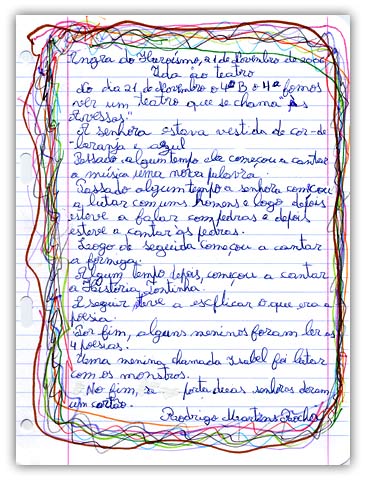 Angra do Heroísmo, 21 de Novembro de 2006
Ida ao teatro
No dia 21 de Novembro o 4º B o 4º A fomos
ver um teatro que se chama "Às
Avessas."
A senhora estava vestida de cor-de-
-laranja e azul
Passado algum tempo ela começou a cantar
a música uma nova palavra.
Passado algum tempo a senhora começou
a lutar com uns homens e logo depois
esteve a falar com pedras e depois
esteve a cantar às pedras.
Logo de seguida começou a cantar
a formiga.
Algum tempo depois, começou a cantar
a História Tontinha.
A seguir teve a esclficar o que era a
poesia.
Por fim, alguns meninos foram ler as
4 poesias.
Uma menina chamada Isabel foi lutar
com os monstros.
No fim, porta duas senhoras deram
um cartão.
Rodrigo Martins Rocha